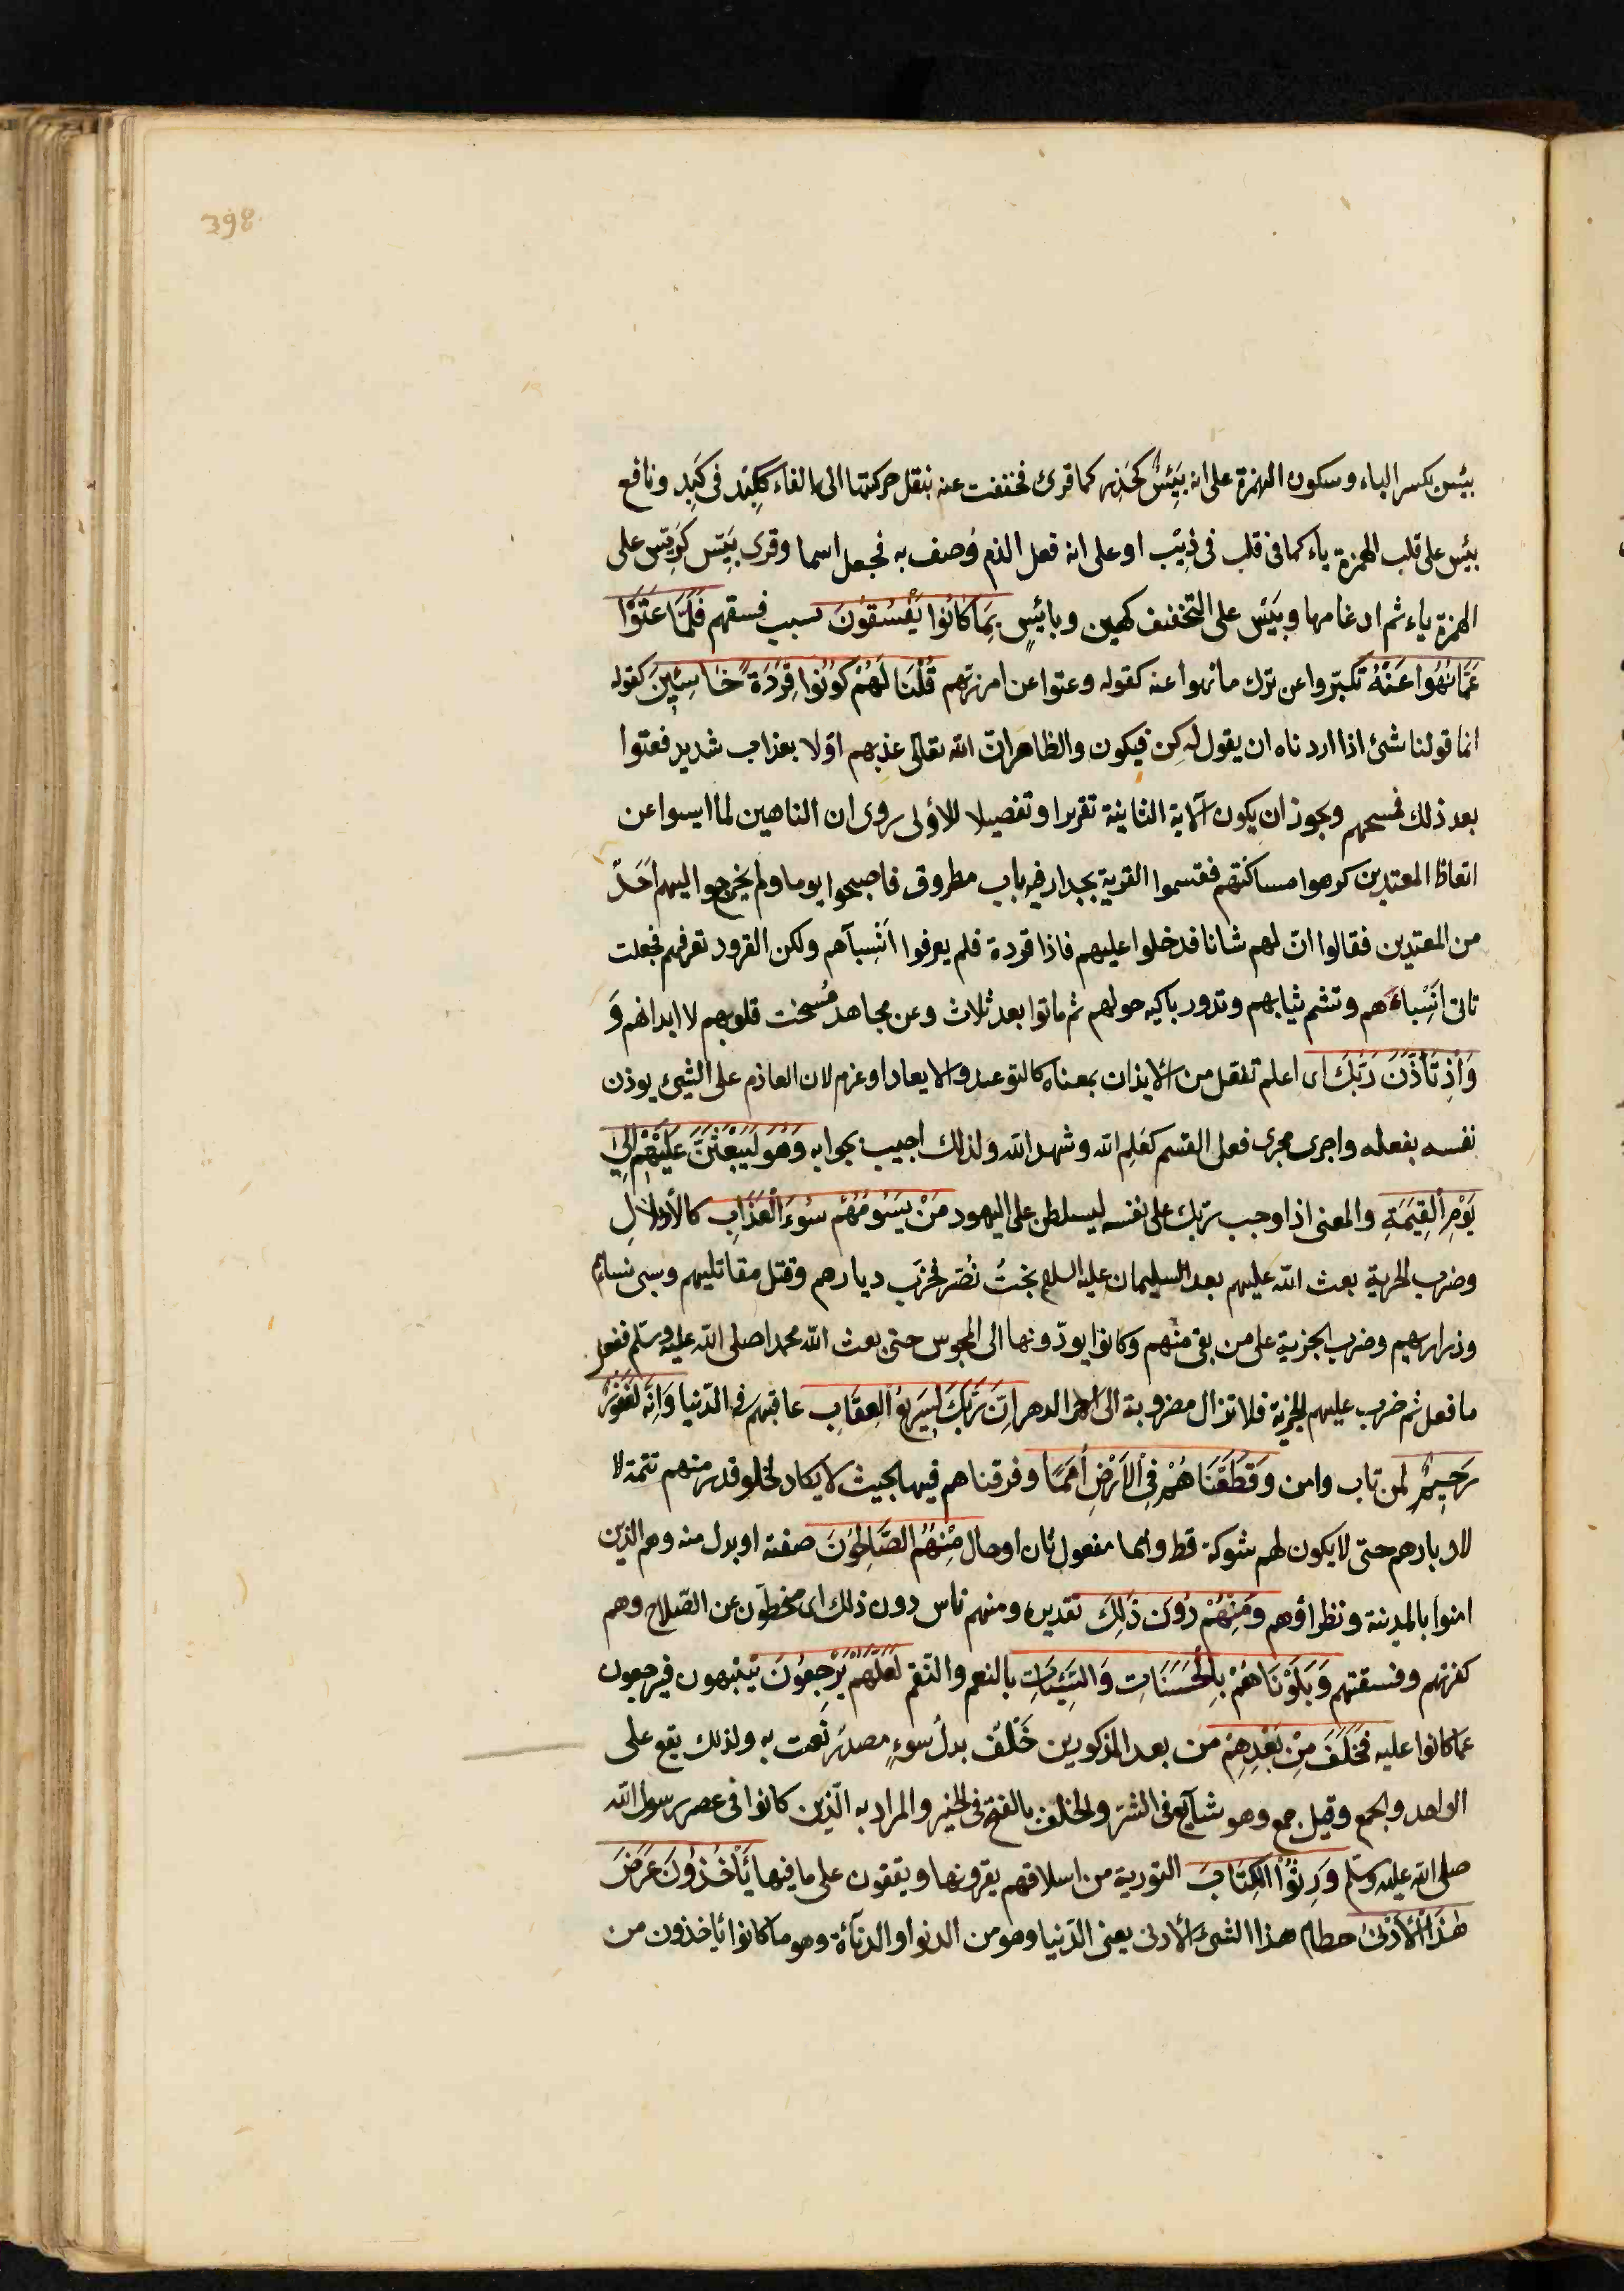 398
بئس بكسر الباء وسكون الهمزة على انه بَئِسٌ كحذر كما قرئ فخففت عنه بنقل حركتها الى الفاء ككِبْد فى كَبِد ونافع
بيْس على قلب الهمزة ياء كما فى قلب فى ذيْب او على انه فعل الذم وُصف به فجعل اسما وقرى بَيِّس كريّس على
الهمزة ياء ثم ادغامها وبَيْس على التخفيف كهين وبائسٍ بِمَا كَانُوا يَفْسُقُونَ بسبب فسقهم فَلَمَّا عَتَوْا
عَمَّا نُهُوا عَنْهُ تكبّروا عن ترك ما نهوا عنه كقوله وعتوا عن امر ربهم قُلْنَا لَهُمْ كُونُوا قِرَدَةً خَاسِئِينَ كقوله
انما قولنا شئ اذا اردناه ان يقول له كن فيكون والظاهر انّ الله تعالى عذبهم اوّلا بعذاب شديد فعتوا
بعد ذلك فمسخهم ويجوز ان يكون الآية الثانية تقريرا وتفصيلا للأولى روى ان الناهين لما ايسوا عن
اتعاظ المعتدين كرهوا مساكنتهم فقسموا القرية بجدار فيه باب مطروق فاصبحوا يوما ولم يخرجوا اليهم اَحَدٌ
من المعتدين فقالوا انّ لهم شانا فدخلوا عليهم فاذا قردة فلم يعرفوا اَنْسِبآهم ولكن القرود تعرفهم فجعلت
تاتى اَنْسِباءَهم وتشم ثيابهم وتدور باكيه حولهم ثم ماتوا بعد ثلاث وعن مجاهد مُسخت قلوبهم لا ابدانهم وَ
وَاِذْ تَاَذَّنَ رَبُّكَ اى اعلم تفعّل من الايذان بمعناه كالتوعد والايعاد او عزم لان العازم على الشئ يوذن
نفسه بفعله واجرى مجرى فعل القسم كعَلِم الله وشهد الله ولذلك اجيب بجوابه وَهُوَ لَيَبْعَثَنَّ عَلَيْهِمْ اِلٰى
يَوْمِ الْقِيٰمَةِ والمعنى اذ اوجب ربّك على نفسه ليسلطن على اليهود مَنْ يَسُومُهُمْ سُوءَ الْعَذَابِ كالاذلالِ
وضرب الجزية بعث الله عليهم بعد السليمان عليه السلم بختُ نصّر فخرّب ديارهم وقتل مقاتليهم وسبى نساءهم
وذراريهم وضرب الجزية على من بقى منهم وكانوا يودّونها الى المجوس حتى بعث الله محمدا صلى الله عليه وسلم ففعل
ما فعل ثم ضرب عليهم الجزية فلا تزال مضروبة الى اٰخر الدهر اِنَّ رَبَّكَ لَسَرِيعُ الْعِقَابِ عاقبهم فى الدّنيا وَاِنَّهُ لَغَفُورٌ
رَحِيمٌ لمن تاب وامن وَقَطَّعْنَاهُمْ فِى الْاَرْضِ اُمَمًا وفرقناهم فيها بحيث لا يكاد يخلو قدر منهم تتمة لا
لادبارهم حتى لا يكون لهم شوكة قط وامما مفعول ثان او حال مِنْهُمُ الصَّالِحُونَ صفته او بدل منه وهم الذين
امنوا بالمدينة ونظراؤهم وَمِنْهُمْ دُونَ ذٰلِكَ تقديره ومنهم ناس دون ذلك اى منحطون عن الصّلاح وهم
كفرتهم وفسقتهم وَبَلَوْنَاهُمْ بِالْحَسَنَاتِ وَالسَّيِّئَاتِ بالنعم والنّقم لَعَلَّهُمْ يَرْجِعُونَ ينتبهون فيرجعون
عما كانوا عليه فَخَلَفَ مِنْ بَعْدِهِمْ من بعد المذكورين خَلْفٌ بدلُ سوءٍ مصدر نُعت به ولذلك يقع على
الواحد والجمع وقيل جمع وهو شآيع فى الشرّ والخلف بالفتح فى الخير والمراد به الّذين كانوا فى عصر رسول الله
صلى الله عليه وسلم وَرِثُوا الْكِتَابَ التورية من اسلافهم يقرونها ويقفون على ما فيها يَأْخُذُونَ عَرَضَ
هٰذَا الْاَدْنٰى حطام هذا الشئ الأدنى يعنى الدّنيا وهو من الدنو او الدنآءة وهو ما كانوا يأخذون من